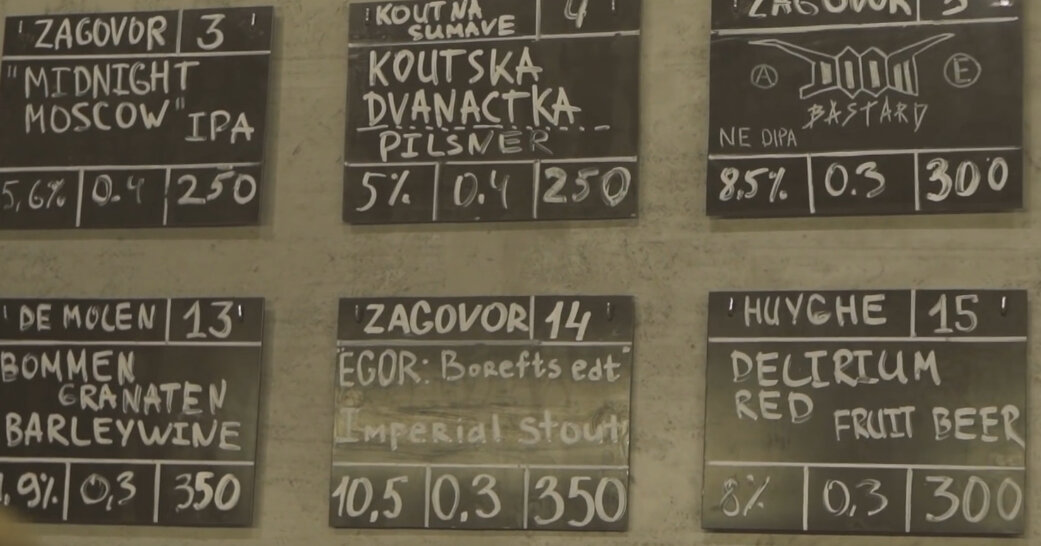 ZAGOVOR 3
"MIDNIGHT
MOSCOW"
IPA
5,6% 0.4 250
KOUT NA
SUMAVE
4
KOUTSKA
DVANACTKA
PILSNER
5% 0.4 250
ZAGOVOR 5
A DOOM E
BASTARD
NE DIPA
8.5% 0.3 300
DE MOLEN 13
BOMMEN
GRANATEN
BARLEYWINE
0,3 350
ZAGOVOR 14
"EGOR: Borefts edt"
Imperial Stout
10,5 0.3 350
HUYGHE 15
DELIRIUM
RED
FRUIT BEER
8% 0,3 300